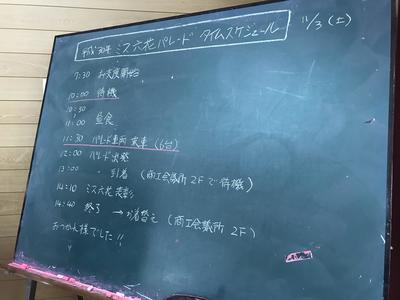 平成30年 ミス六花パレード タイムスケジュール
11/3(土)
7:30 お支度開始
10:00 待機
10:50
11:00 昼食
11:30 パレード車両 乗車 (6台)
12:00 パレード出発
13:00 〃 到着 (商工会議所 2Fで待機)
14:10 ミス六花 表彰
14:40 終了 → お着替え (商工会議所 2F)
おつかれ様でした!!